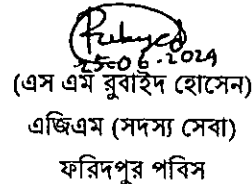 25-06-2024
(এস এম রুবাইদ হোসেন)
এজিএম (সদস্য সেবা)
ফরিদপুর পবিস